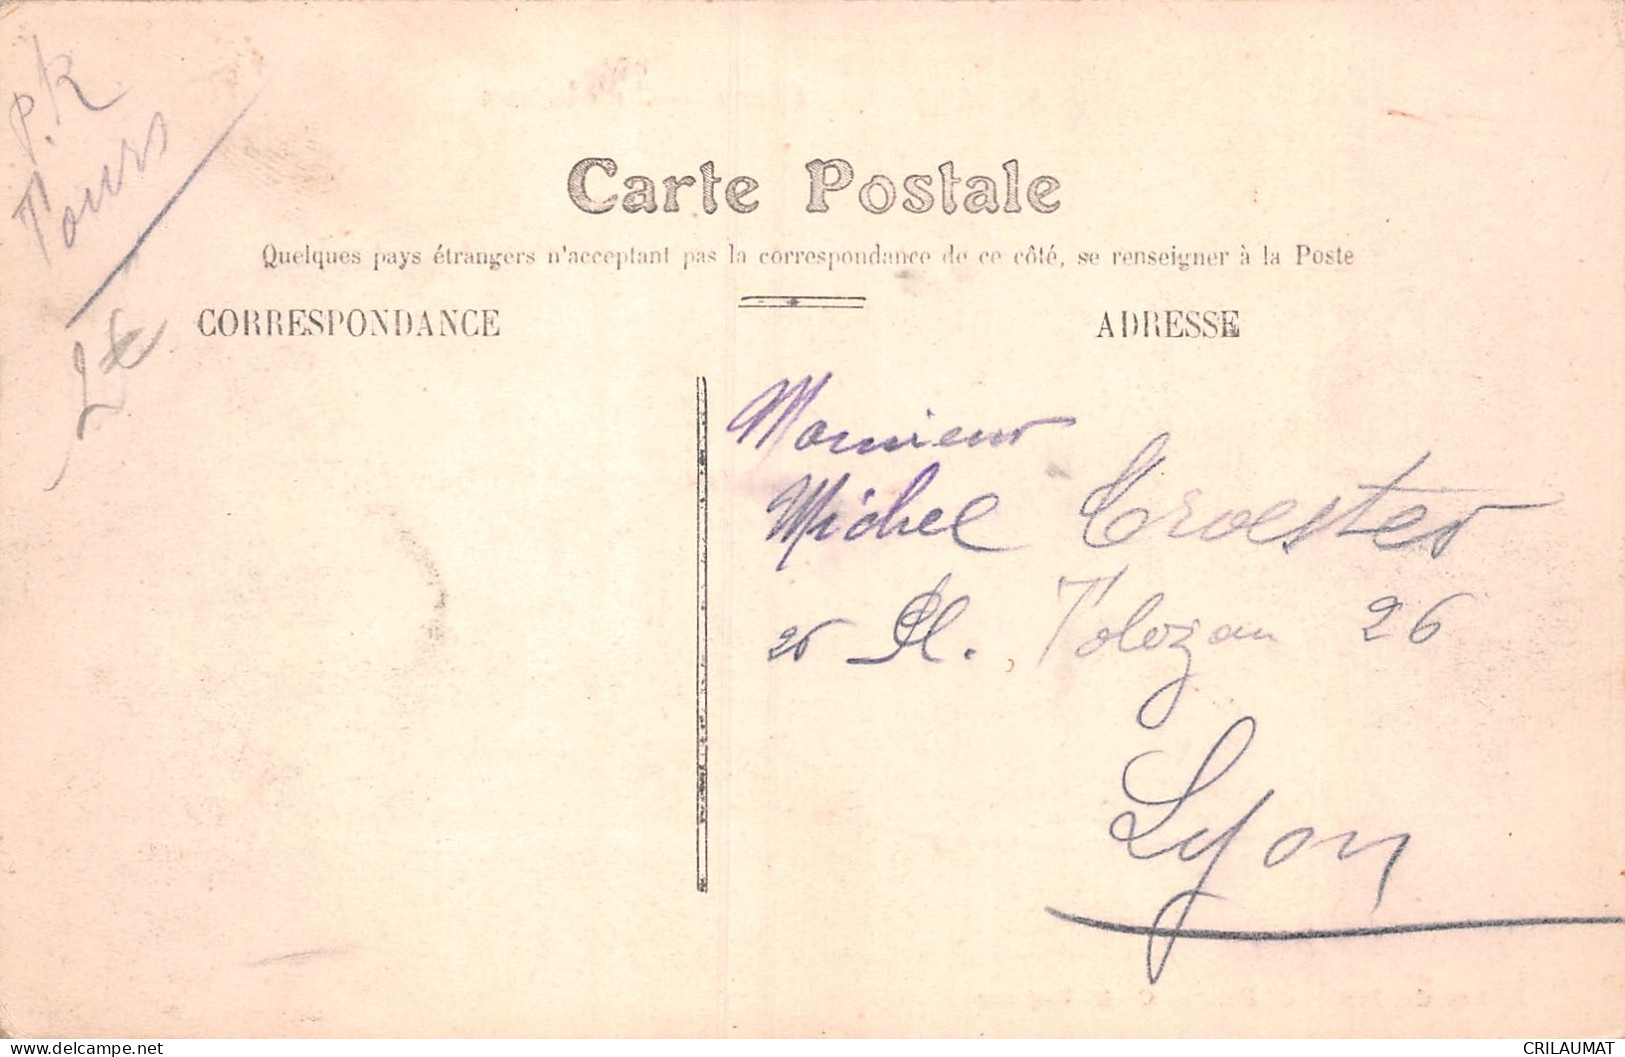 P.R
Tours
2€
Carte Postale
Quelques pays étrangers n'acceptent pas la correspondance de ce côté, se renseigner à la Poste
CORRESPONDANCE
ADRESSE
Monsieur
Michel Troester
26 Pl. Tolozan 26
Lyon
delcampe.net
CRILAUMAT